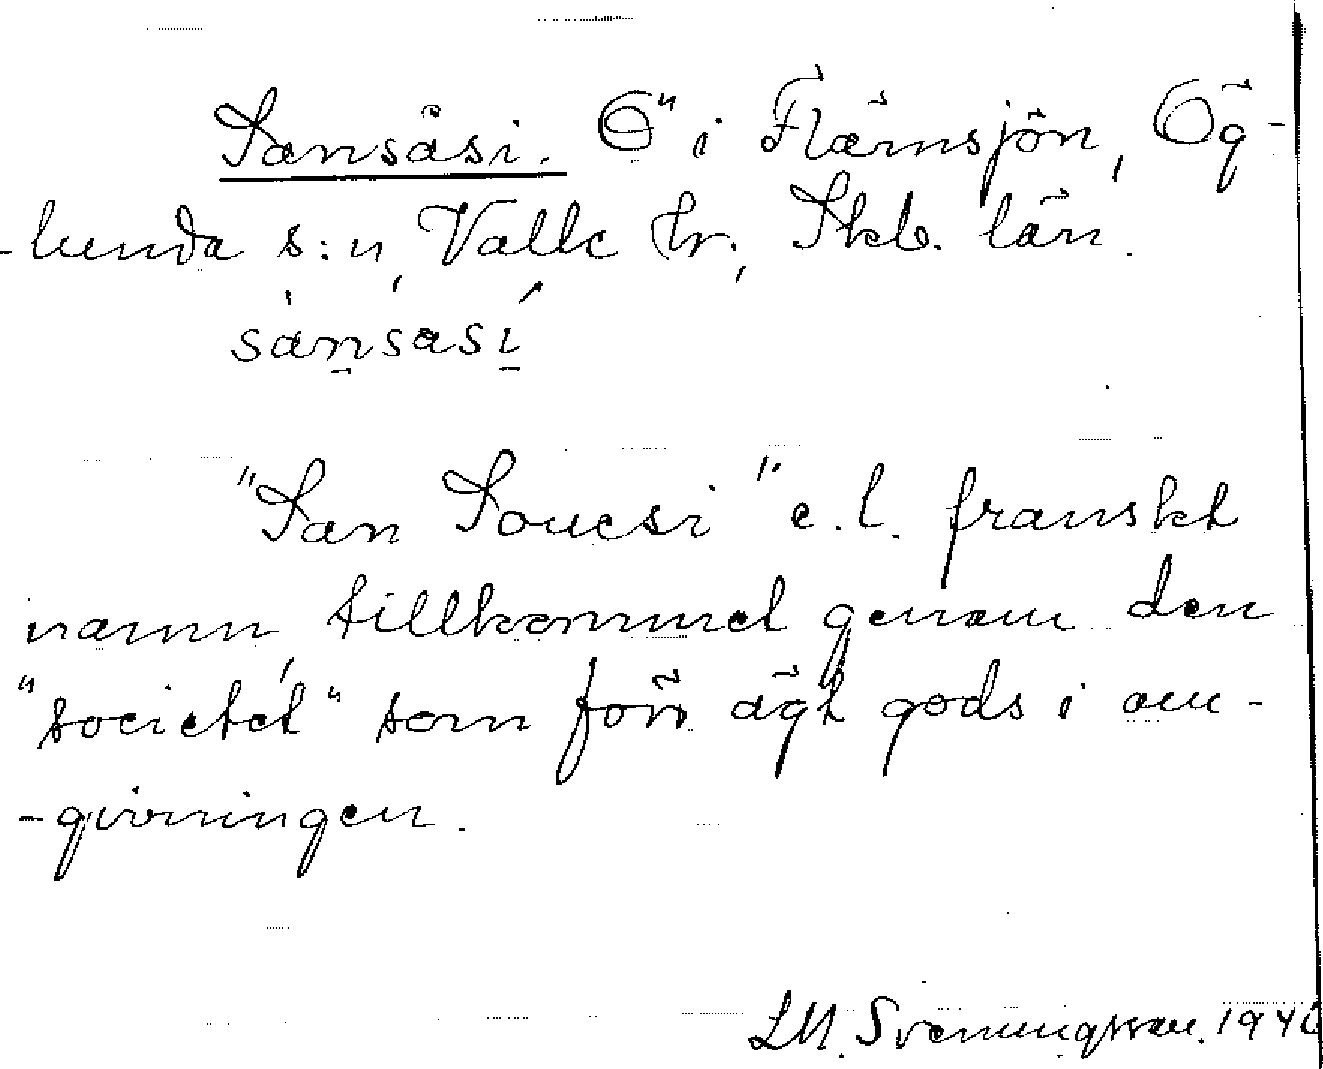 Sansåsi. Ö i Flämsjön, Ög-
-lunda s:n, Valle hr., Skb. län.
sànsasí
"San Soucsi" e.l. franskt
namn, tillkommet genom den
"societet" som förr ägt gods i om-
-givningen.
LM. Svenungsson. 194